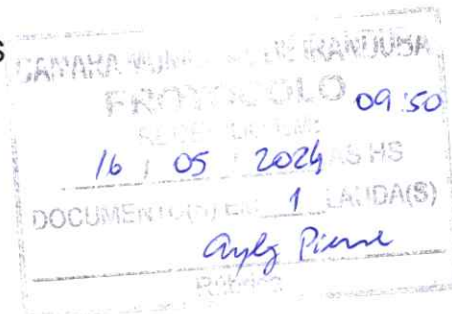 S
CÂMARA MUNICIPAL DE IRANDUBA
PROTOCOLO 09:50
16 / 05 2024 ÀS HS
DOCUMENTO(S) EM 1 LAUDA(S)
Rubrica